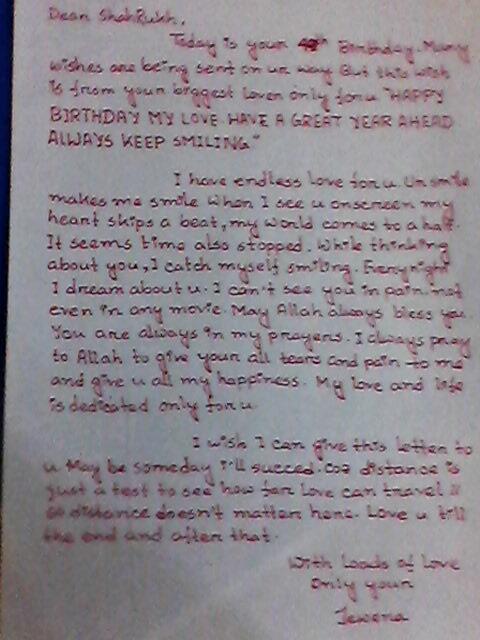 Dear ShahRukh,
Today is your 48th Birthday. Many
wishes are being sent on ur way But this wish
is from your biggest lover only for u "HAPPY
BIRTHDAY MY LOVE HAVE A GREAT YEAR AHEAD
ALWAYS KEEP SMILING"
I have endless love for u. Ur smile
makes me smile when I see u onscreen my
heart skips a beat, my world comes to a halt.
It seems time also stopped. While thinking
about you, I catch myself smiling. Every night
I dream about u. I can't see you in pain not
even in any movie. May Allah always bless you.
You are always in my prayers. I always pray
to Allah to give your all tears and pain to me
and give u all my happiness. My love and life
is dedicated only for u.
I wish I can give this letter to
u May be someday i'll succed. Coz distance is
just a test to see how far love can travel
so distance doesn't matter here. Love u till
the end and after that.
With Loads of Love
Only your
Jewena